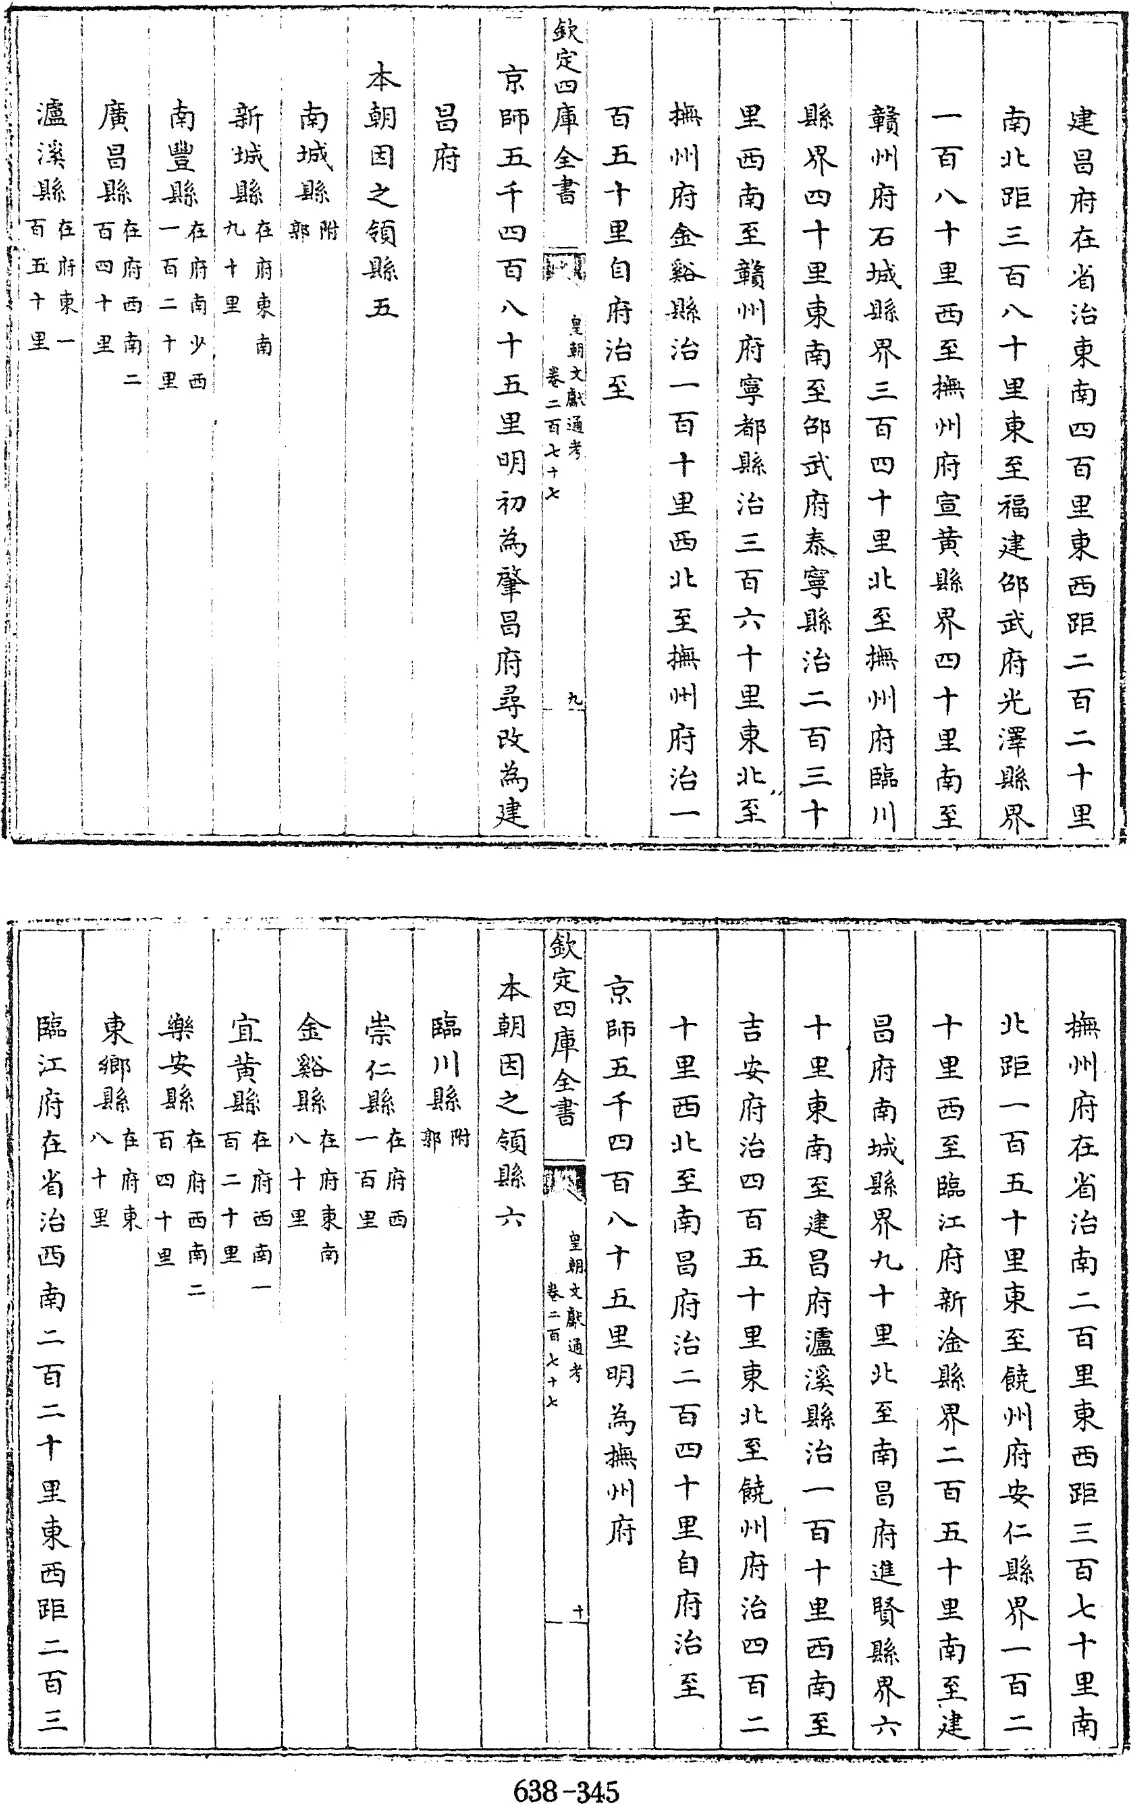 建昌府在省治東南四百里東西距二百二十里
南北距三百八十里東至福建邵武府光澤縣界
一百八十里西至撫州府宣黄縣界四十里南至
贛州府石城縣界三百四十里北至撫州府臨川
縣界四十里東南至邵武府泰寧縣治二百三十
里西南至贛州府寧都縣治三百六十里東北至
撫州府金谿縣治一百十里西北至撫州府治一
百五十里自府治至
欽定四庫全書
皇朝文獻通考
卷二百七十七
九
京師五千四百八十五里明初為肇昌府尋改為建
昌府
本朝因之領縣五
南城縣附郭
新城縣在府東南九十里
南豐縣在府南少西一百二十里
廣昌縣在府西南二百四十里
瀘溪縣在府東一百五十里
撫州府在省治南二百里東西距三百七十里南
北距一百五十里東至饒州府安仁縣界一百二
十里西至臨江府新淦縣界二百五十里南至建
昌府南城縣界九十里北至南昌府進賢縣界六
十里東南至建昌府瀘溪縣治一百十里西南至
吉安府治四百五十里東北至饒州府治四百二
十里西北至南昌府治二百四十里自府治至
京師五千四百八十五里明為撫州府
欽定四庫全書
皇朝文獻通考
卷二百七十七
十
本朝因之領縣六
臨川縣附郭
崇仁縣在府西一百里
金谿縣在府東南八十里
宜黄縣在府西南一百二十里
樂安縣在府西南二百四十里
東鄉縣在府東八十里
臨江府在省治西南二百二十里東西距二百三
638-345